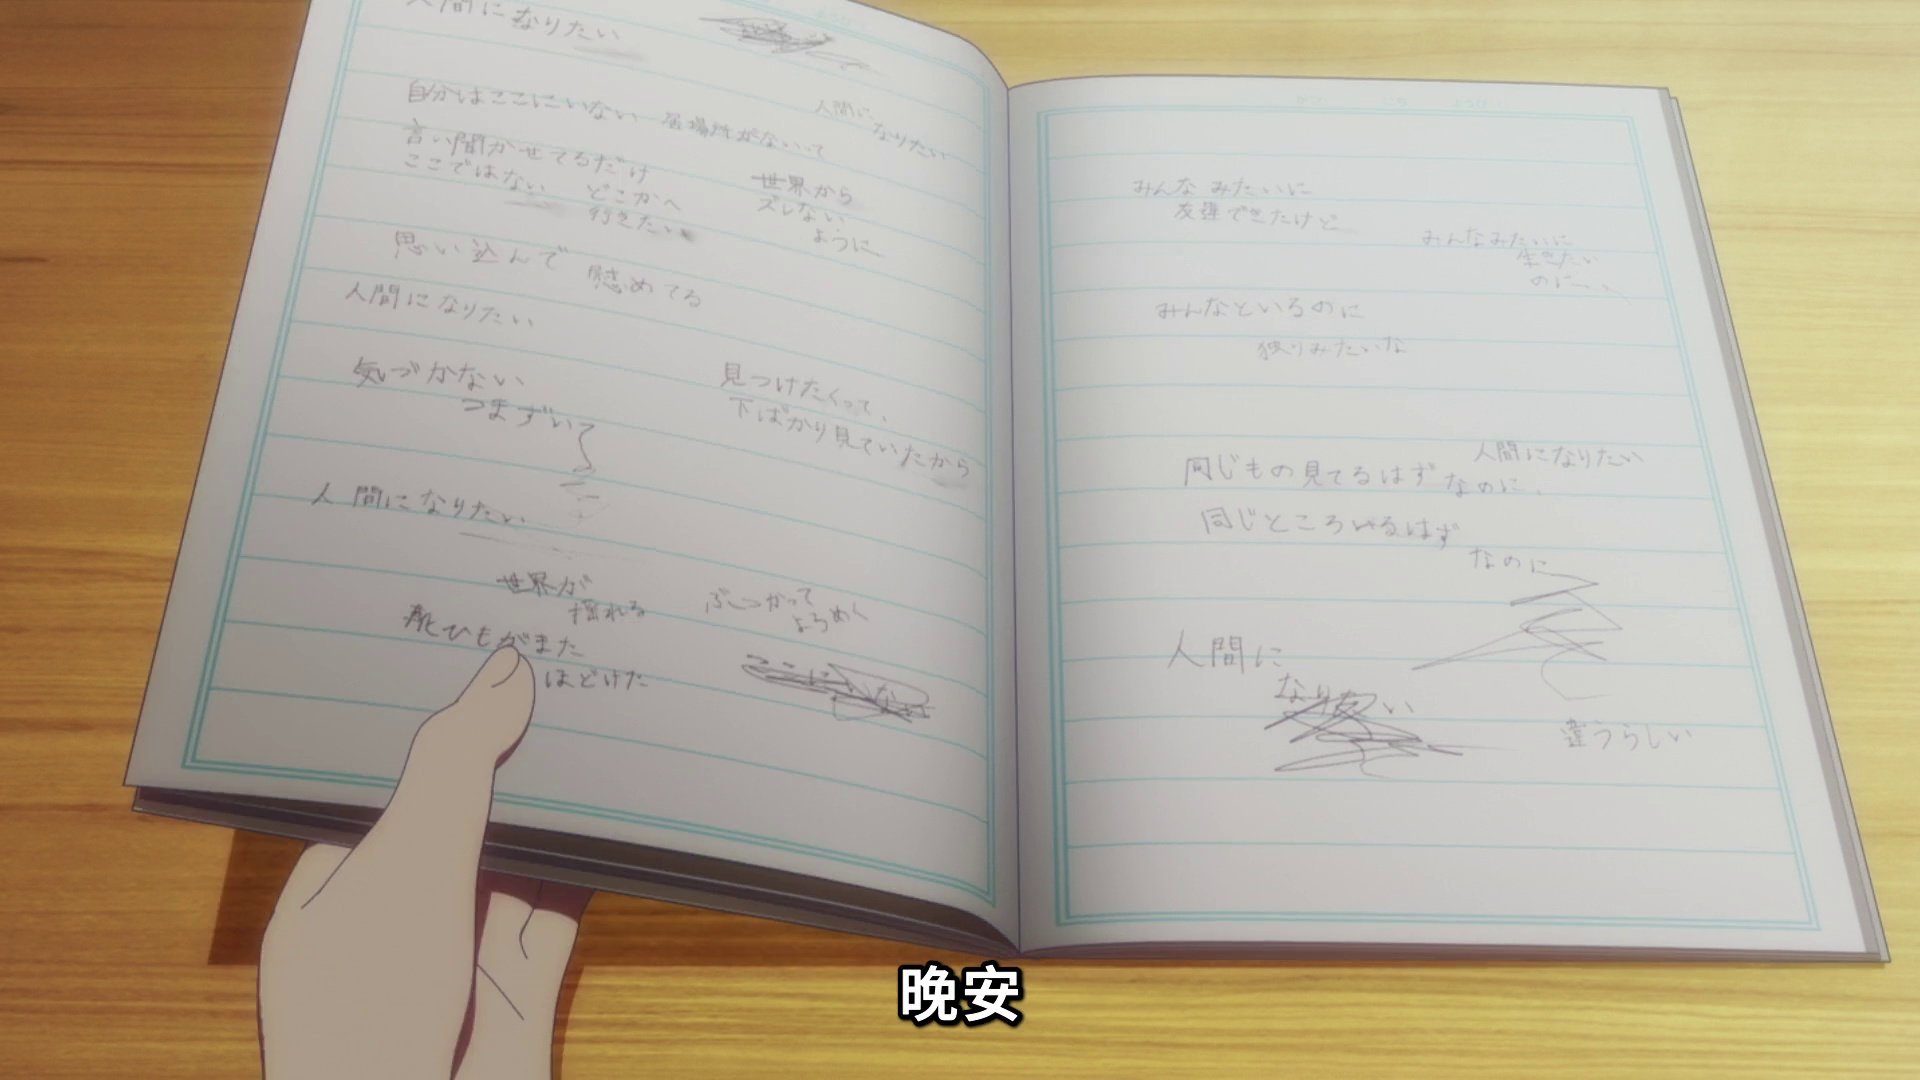 人間になりたい
自分はここにいない 居場所がないって
人間に
なりたい
言い聞かせてるだけ
ここではない どこかへ
行きたい
世界から
ズレない
ように
思い込んで 慰めてる
人間になりたい
気づかない
つまずいて
見つけたくって、
下ばかり見ていたから
人間になりたい
世界が
揺れる
靴ひもがまた
ほどけた
ぶつかって
よろめく
ここにいな
みんなみたいに
友達できたけど
みんなみたいに
生きたい
のに
みんなといるのに
独りみたいな
人間になりたい
同じもの見てるはずなのに、
同じところいるはず
なのに
人間に
なりたい
違うらしい
晚安